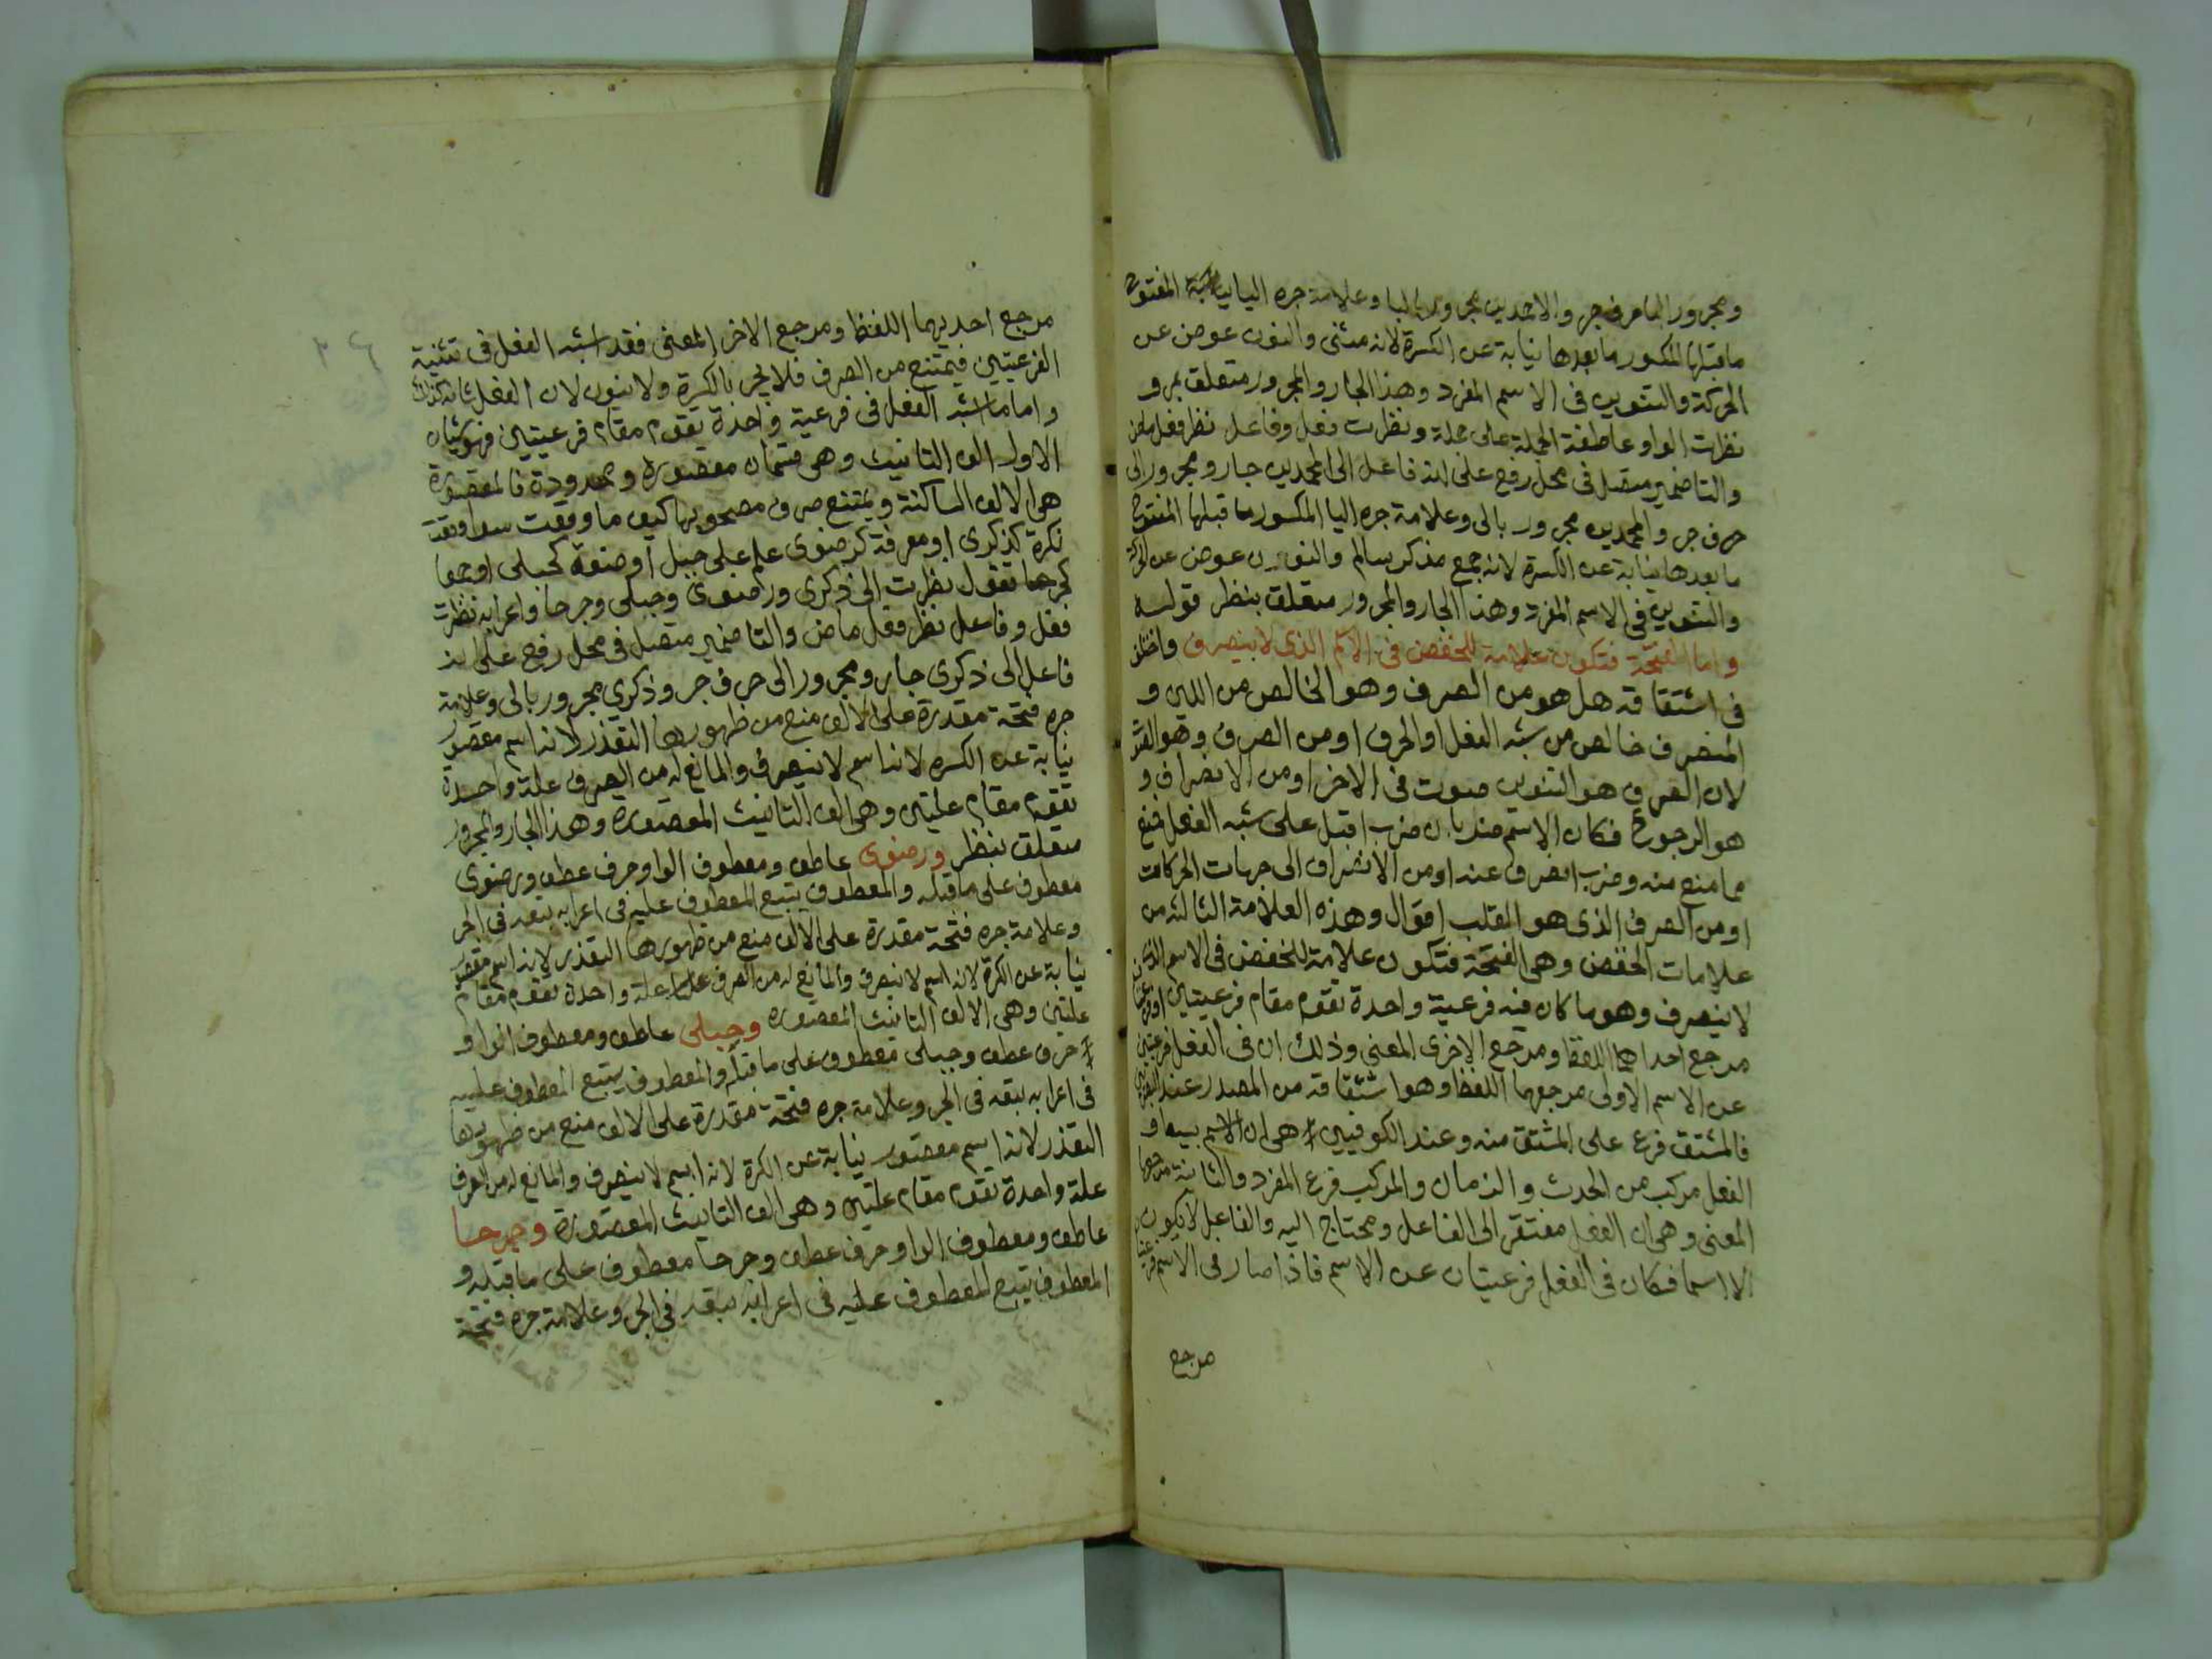 ومجرور البا حرف جر والاحمدين مجرور بالبا وعلامة جره اليا المفتوح
ماقبلها المكسور مابعدها نيابة عن الكسرة لانه مثنى والنون عوض عن
الحركة والتنوين في الاسم المفرد وهذا الجار والمجرور متعلق بمر و
نظرت الواو عاطفة الجملة على جملة ونظرت فعل وفاعل نظر فعل ماض
والتا ضمير متصل في محل رفع على انه فاعل الى المحمدين جار ومجرور الى
حرف جر والمحمدين مجرور بالى وعلامة جره اليا المكسور ما قبلها المفتوح
ما بعدها نيابة عن الكسرة لانه جمع مذكر سالم والنون عوض عن الحركة
والتنوين في الاسم المفرد وهذا الجار والمجرور متعلق بنظر قوله
واما الفتحة فتكون علامة للخفض في الاسم الذي لا ينصرف واختلف
في اشتقاقه هل هو من الصرف وهو الخالص من اللبن و
المنصرف خالص من شبه الفعل او الحرف او من الصرف وهو
لان الصرف هو التنوين صوت في الاخر او من الانصراف و
هو الرجوع فكان الاسم ضربان ضرب اقبل على شبه الفعل فمنع
مما منع منه وضرب انصرف عنه او من الانصراف الى جهات الحركات
او من الصرف الذي هو المقلب اقوال وهذه العلامة الثالثه من
علامات الخفض وهي الفتحة فتكون علامة للخفض في الاسم الذي
لا ينصرف وهو ما كان فيه فرعية واحدة تقوم مقام فرعيتين او
مرجع احداهما اللفظ ومرجع الاخرى المعنى وذلك ان في الفعل فرعيتين
عن الاسم الاولى مرجعها اللفظ وهو اشتقاقه من المصدر عند
فالمشتق فرع على المشتق منه وعند الكوفيين هي ان الاسم بسيط و
الفعل مركب من الحدث والزمان والمركب فرع المفرد والثانية مرجعها
المعنى وهي ان الفعل مفتقر الى الفاعل ومحتاج اليه والفاعل لا يكون
الا اسما فكان في الفعل فرعيتان عن الاسم فاذا صار في الاسم
مرجع
مرجع احديهما اللفظ ومرجع الاخر المعنى فقد اشبه الفعل في تثنية
الفرعيتين فيمتنع من الصرف فلا يجر بالكسرة ولا ينون لان الفعل
واما ما اشبه الفعل في فرعية واحدة تقوم مقام فرعيتين فهو شيئان
الاول الف التانيث وهي قسمان مقصورة وممدودة فالمقصورة
هي الالف الساكنة ويمتنع صرف مصحوبها كيف ما وقعت سوا وقعت
نكرة كذكرى او معرفة كرضوى علم على جبل او صفة كحبلى او جمعا
كجرحا تقول نظرت الى ذكرى ورضوى وحبلى وجرحا واعرابه نظرت
فعل وفاعل نظر فعل ماض والتا ضمير متصل في محل رفع على انه
فاعل الى ذكرى جار ومجرور الى حرف جر وذكرى مجرور بالى وعلامة
جره فتحة مقدرة على الالف منع من ظهورها التعذر لانه اسم مقصور
نيابة عن الكسره لانه اسم لا ينصرف والمانع له من الصرف علة واحدة
تقوم مقام علتين وهي الف التانيث المقصورة وهذا الجار والمجرور
متعلق بنظر ورضوى عاطف ومعطوف الواو حرف عطف ورضوى
معطوف على ما قبله والمعطوف يتبع المعطوف عليه في اعرابه تبعه في الجر
وعلامة جره فتحة مقدرة على الالف منع من ظهورها التعذر لانه اسم مقصور
نيابة عن الكسرة لانه اسم لا ينصرف والمانع له من الصرف علة واحدة تقوم مقام
علتين وهي الالف التانيث المقصوره وحبلى عاطف ومعطوف الواو
حرف عطف وحبلى معطوف على ما قبله والمعطوف يتبع المعطوف عليه
في اعرابه تبعه في الجر وعلامة جره فتحة مقدرة على الالف منع من ظهورها
التعذر لانه اسم مقصور نيابة عن الكسرة لانه اسم لا ينصرف والمانع له من الصرف
علة واحدة تقوم مقام علتين وهي الف التانيث المقصورة وجرحا
عاطف ومعطوف الواو حرف عطف وجرحا معطوف على ما قبله و
المعطوف يتبع المعطوف عليه في اعرابه تبعه في الجر وعلامة جره فتحة